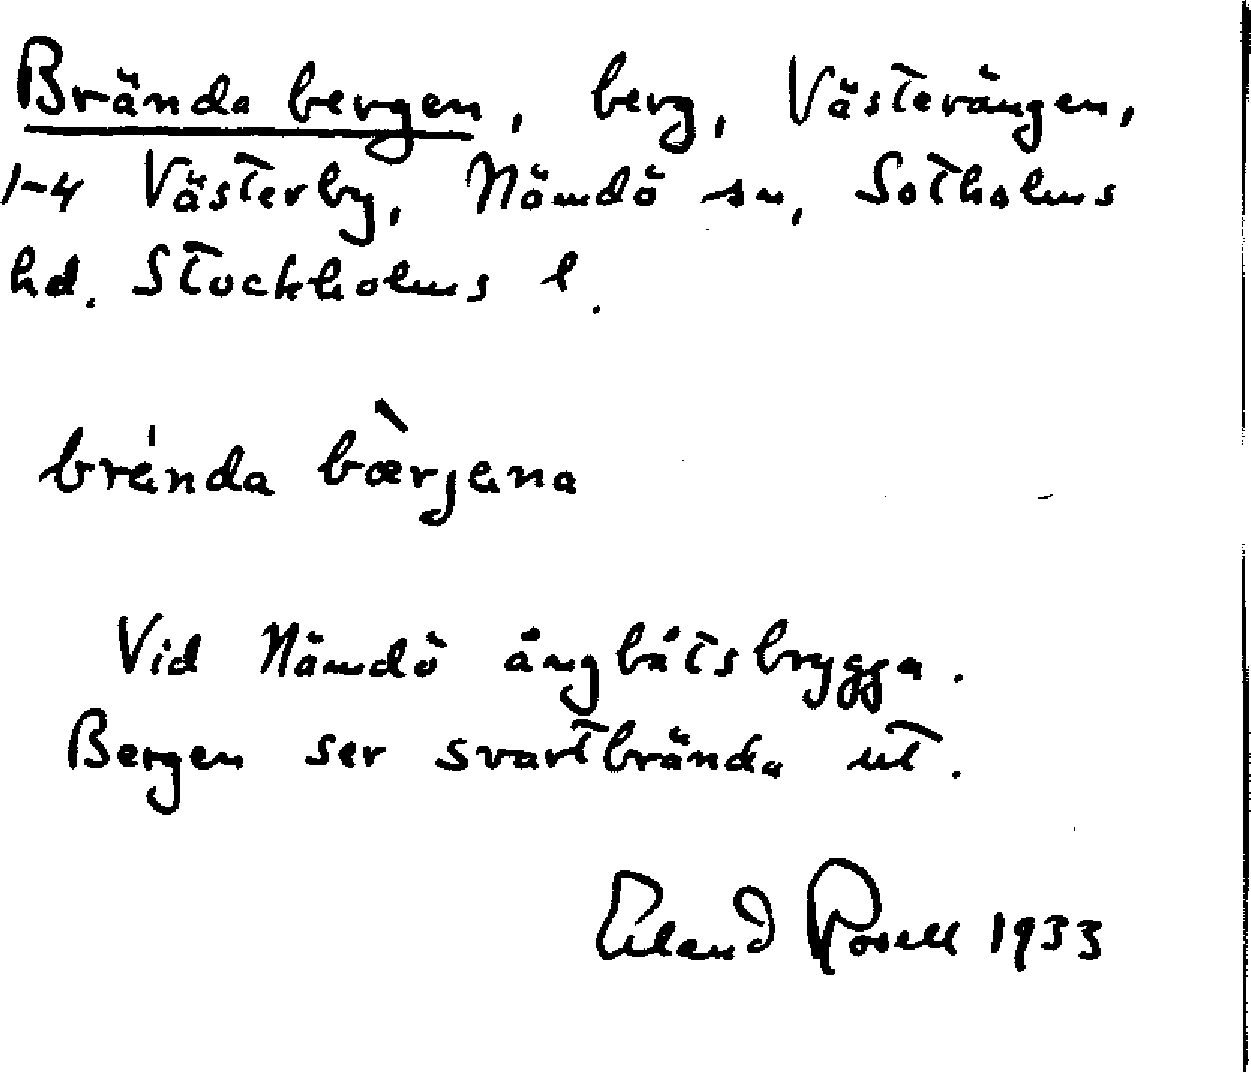 Brända bergen, berg, Västerängen,
1-4 Västerby, Nämdö sn, Sotholms
hd. Stockholms l.
brénda bærjena
Vid Nämdö ångbåtsbrygga.
Bergen ser svartbrända ut.
Erland Rosell 1933